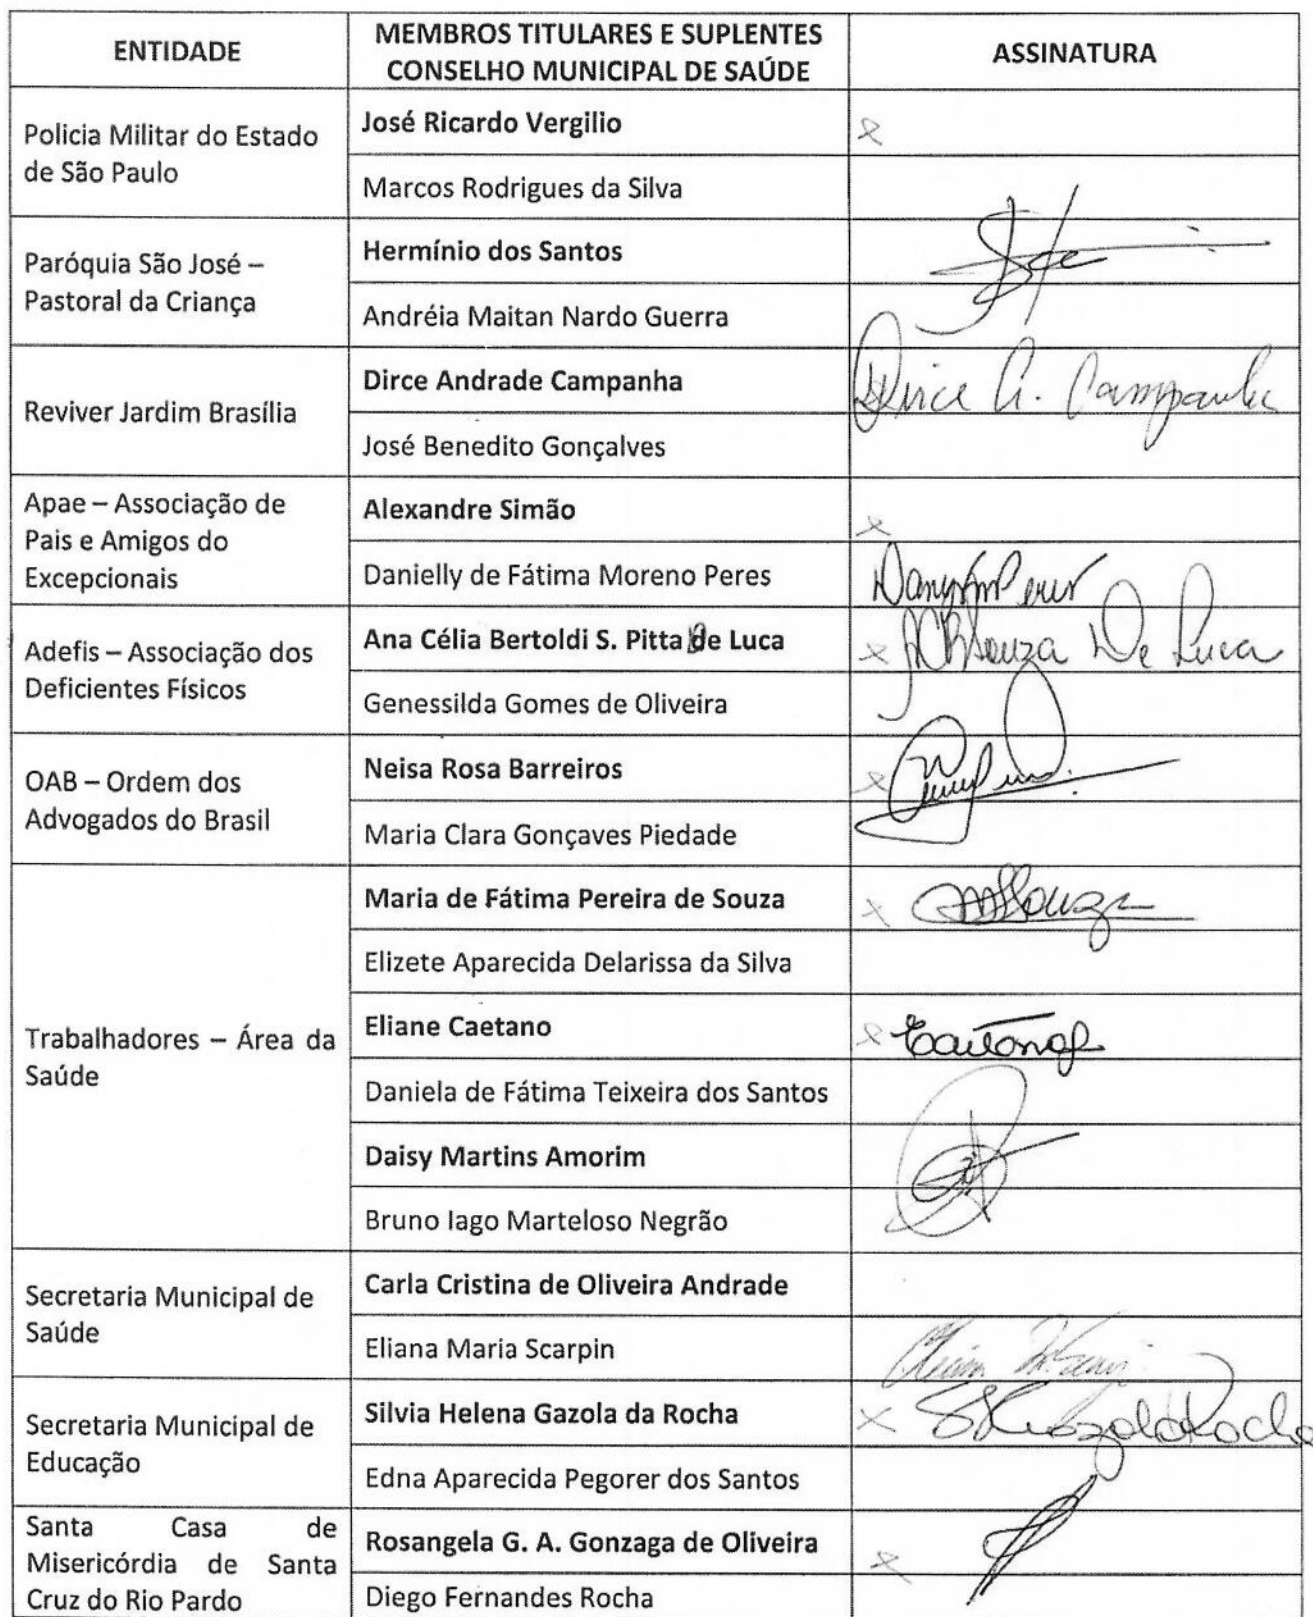 ENTIDADE
MEMBROS TITULARES E SUPLENTES
CONSELHO MUNICIPAL DE SAÚDE
ASSINATURA
Policia Militar do Estado
de São Paulo
José Ricardo Vergilio
Marcos Rodrigues da Silva
Paróquia São José –
Pastoral da Criança
Hermínio dos Santos
Andréia Maitan Nardo Guerra
Reviver Jardim Brasília
Dirce Andrade Campanha
Dirce A. Campanha
José Benedito Gonçalves
Apae – Associação de
Pais e Amigos do
Excepcionais
Alexandre Simão
Danielly de Fátima Moreno Peres
Adefis – Associação dos
Deficientes Físicos
Ana Célia Bertoldi S. Pitta De Luca
Souza De Luca
Genessilda Gomes de Oliveira
OAB – Ordem dos
Advogados do Brasil
Neisa Rosa Barreiros
Maria Clara Gonçaves Piedade
Trabalhadores – Área da
Saúde
Maria de Fátima Pereira de Souza
Elizete Aparecida Delarissa da Silva
Eliane Caetano
Daniela de Fátima Teixeira dos Santos
Daisy Martins Amorim
Bruno Iago Marteloso Negrão
Secretaria Municipal de
Saúde
Carla Cristina de Oliveira Andrade
Eliana Maria Scarpin
Secretaria Municipal de
Educação
Silvia Helena Gazola da Rocha
Edna Aparecida Pegorer dos Santos
Santa Casa de
Misericórdia de Santa
Cruz do Rio Pardo
Rosangela G. A. Gonzaga de Oliveira
Diego Fernandes Rocha